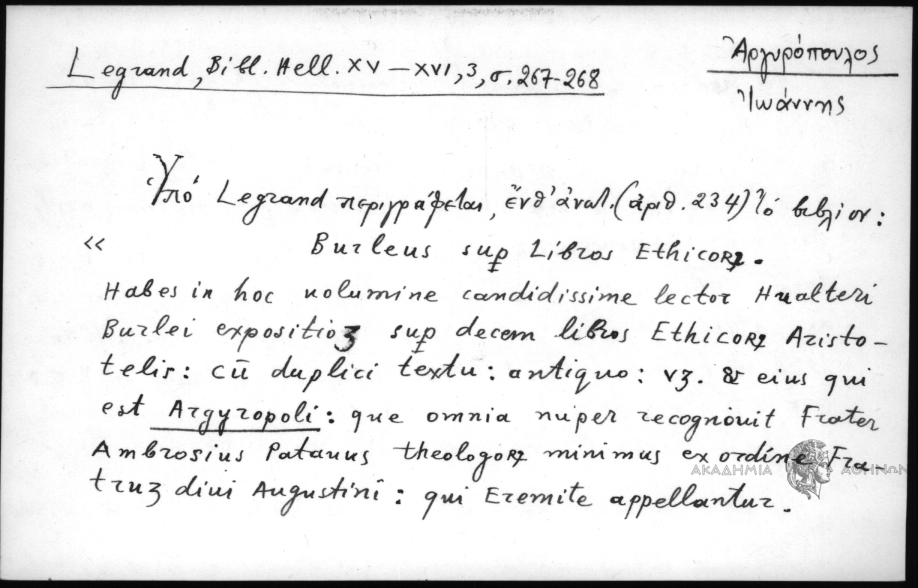 Legrand, Bibl. Hell. XV – XVI, 3, σ. 267-268
Ἀργυρόπουλος
Ἰωάννης
Ὑπό Legrand περιγράφεται, ἔνθ' ἀνωτ. (ἀριθ. 234) τό βιβλίον:
« Burleus suꝑ Libros Ethicoꝝ.
Habes in hoc uolumine candidissime lector Hualteri
Burlei expositioꝫ suꝑ decem libros Ethicoꝝ Aristo-
telis: cū duplici textu: antiquo: vꝫ. & eius qui
est Argyropoli: que omnia nuper recognouit Frater
Ambrosius Patauus theologoꝝ minimus ex ordine Fra-
truꝫ diui Augustini: qui Eremite appellantur.
ΑΚΑΔΗΜΙΑ ΑΘΗΝΩΝ